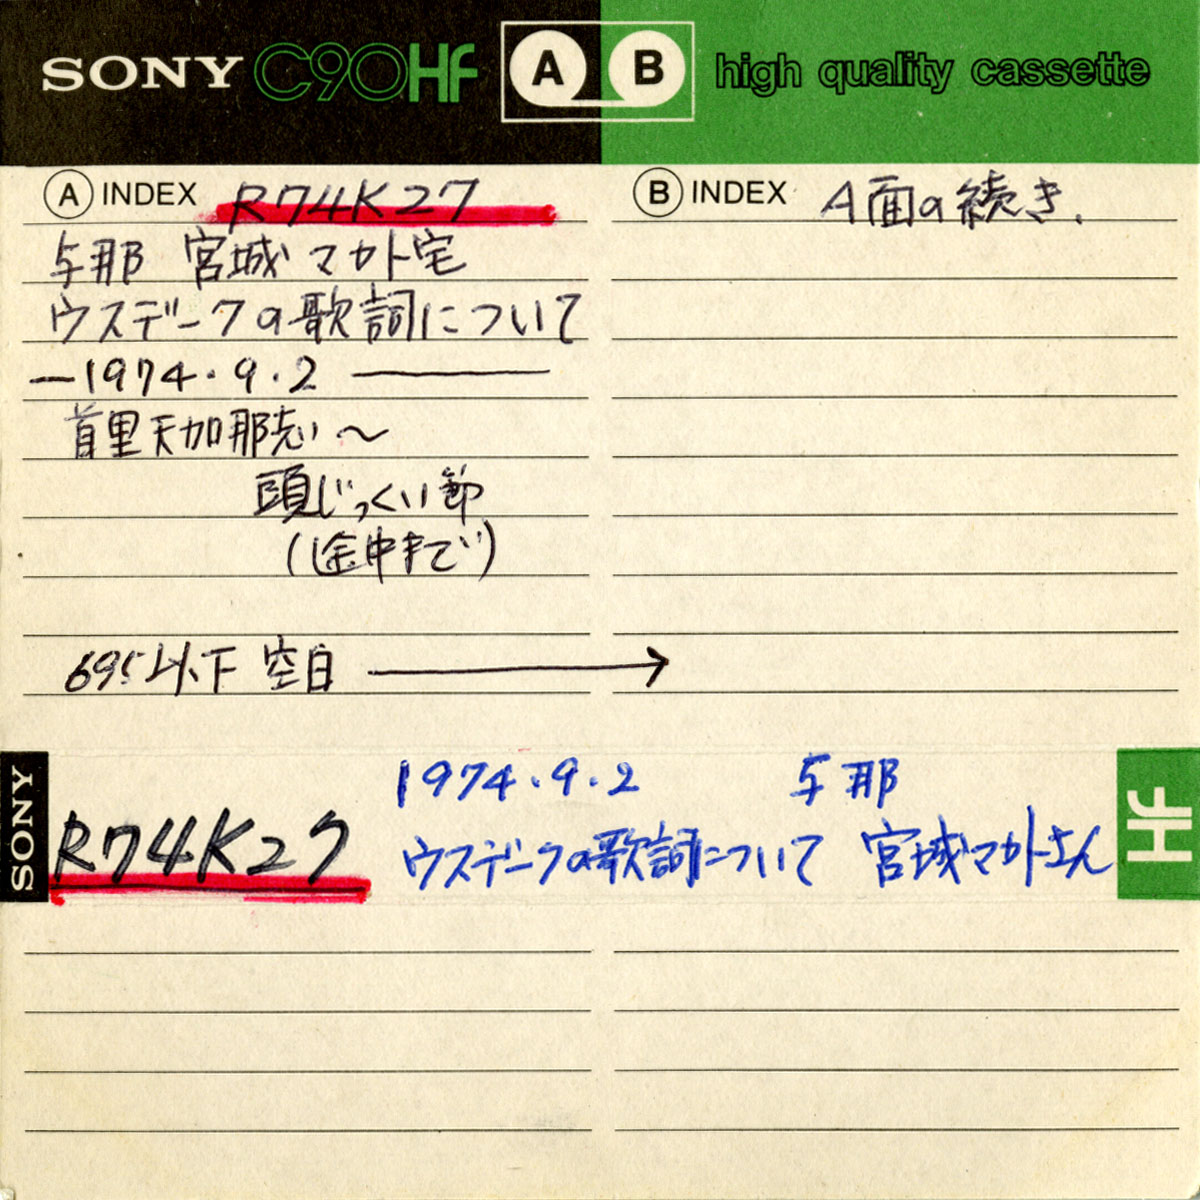 SONY C90HF A B high quality cassette
A INDEX R74K27
与那 宮城マカト宅
ウスデークの歌詞について
—1974.9.2—
首里天加那志〜
頭じっくい節
(途中まで)
695以下 空白 →
B INDEX A面の続き.
SONY
R74K27
1974.9.2 与那
ウスデークの歌詞について 宮城マカトさん
HF